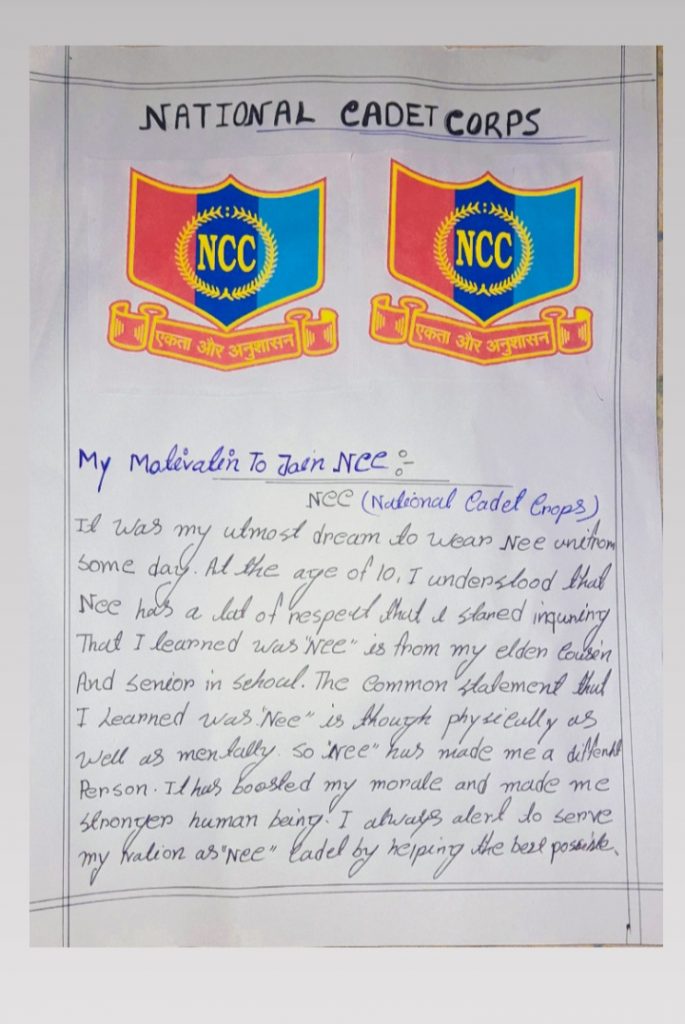 NATIONAL CADET CORPS
NCC
एकता और अनुशासन
NCC
एकता और अनुशासन
My Motivatin To Join NCC :-
NCC (National Cadet Crops)
It was my utmost dream to wear Ncc unifrom
some day. At the age of 10, I understood that
Ncc has a lot of respect that I staned inquning
That I learned was "Ncc" is from my elden Cousin
And senior in school. The Common statement that
I Learned was "Ncc" is though physically as
well as mentally. so "Ncc" has made me a diffent
Person. It has boosted my morale and made me
stronger human being. I always alert to serve
my Nation as "Ncc" Cadet by helping the best possible.